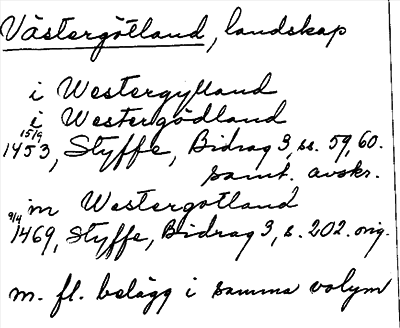 Västergötland, landskap
i Westergylland
i Westergödland
15/9 1453, Styffe, Bidrag 3, ss. 59, 60.
samt. avskr.
m Westergotland
9/4 1469, Styffe, Bidrag 3, s. 202. orig.
m. fl. belägg i samma volym